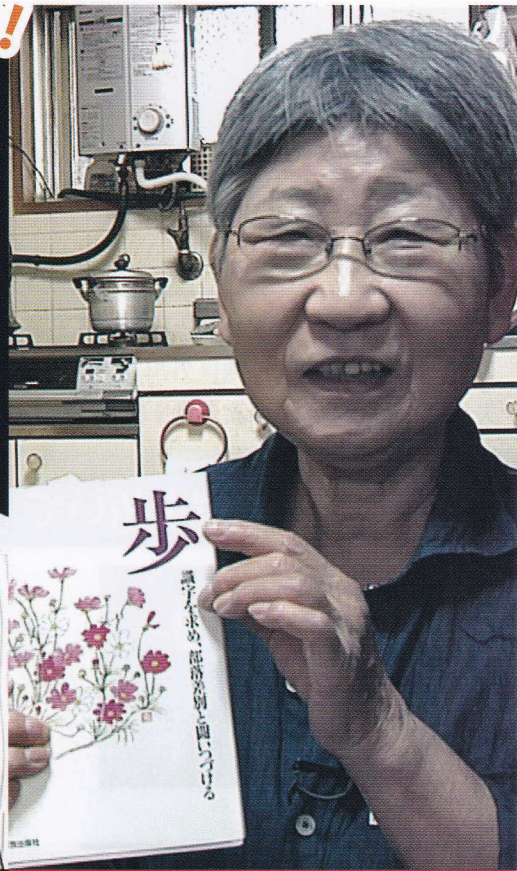 !
歩
識字を求め、部落差別と闘いつづける
放出版社